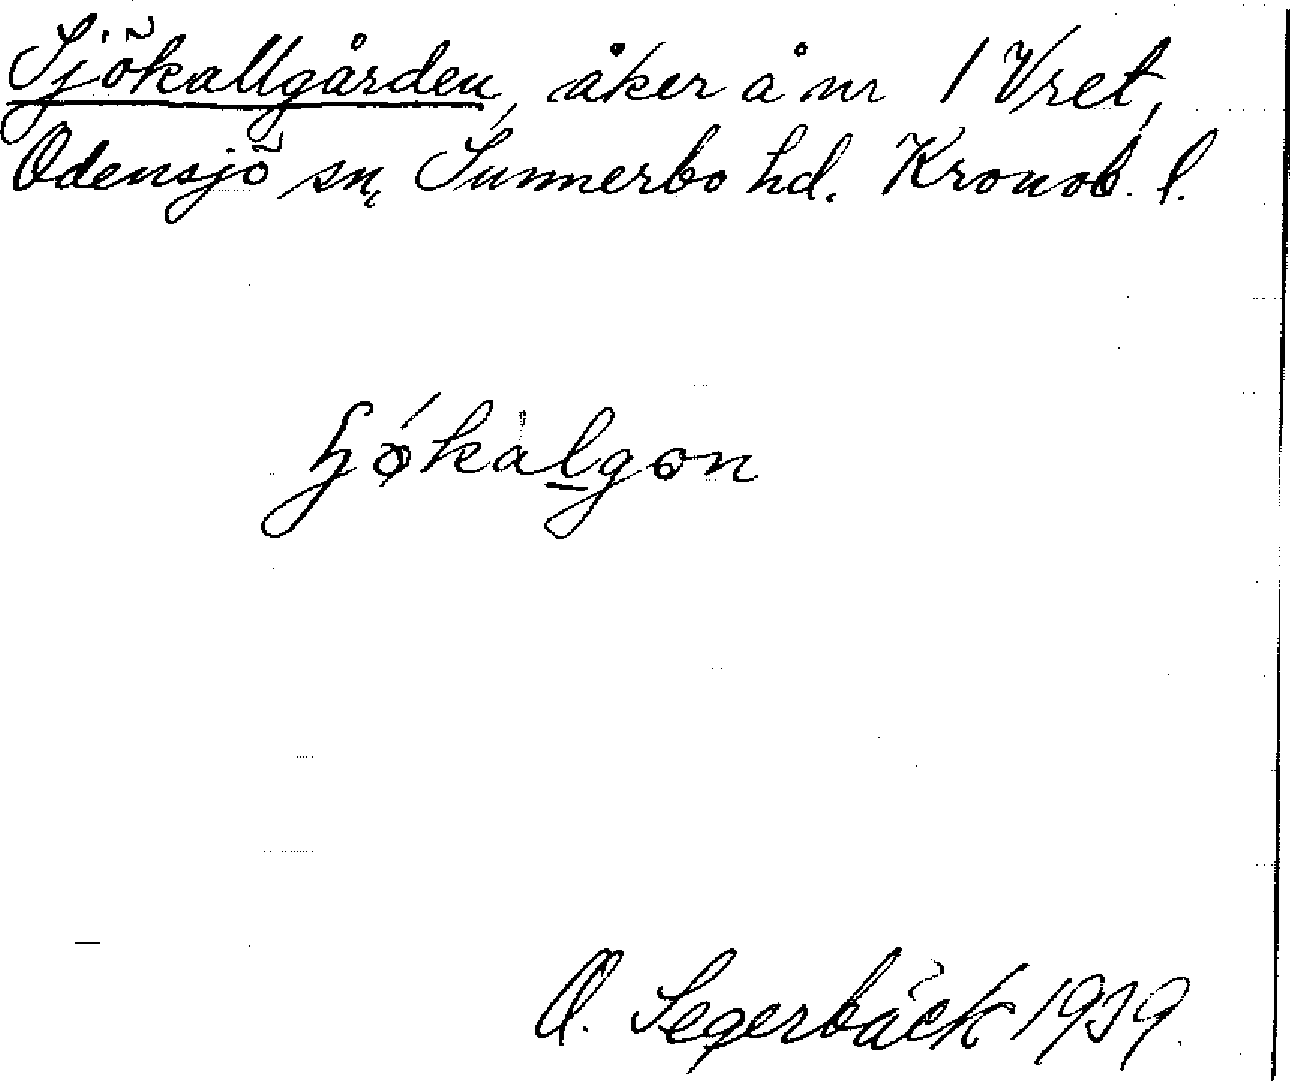 Sjökallgården, åker å nr 1 Vret,
Odensjö sn, Sunnerbo hd. Kronob. l.
O. Segerbäck 1939.